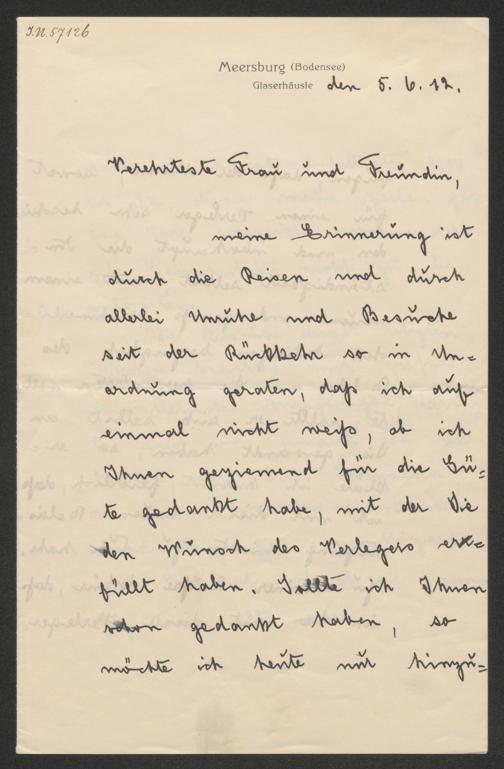 I.N. 57126
Meersburg (Bodensee)
Glaserhäusle den 5. 6. 12.
Verehrteste Frau und Freundin,
meine Erinnerung ist
durch die Reisen und durch
allerlei Unruhe und Besuche
seit der Rückkehr so in Un=
ordnung geraten, daß ich auf
einmal nicht weiß, ob ich
Ihnen geziemend für die Gü=
te gedankt habe, mit der Sie
den Wunsch des Verlegers er=
füllt haben. Sollte ich Ihnen
schon gedankt haben, so
möchte ich heute nur hinzu=